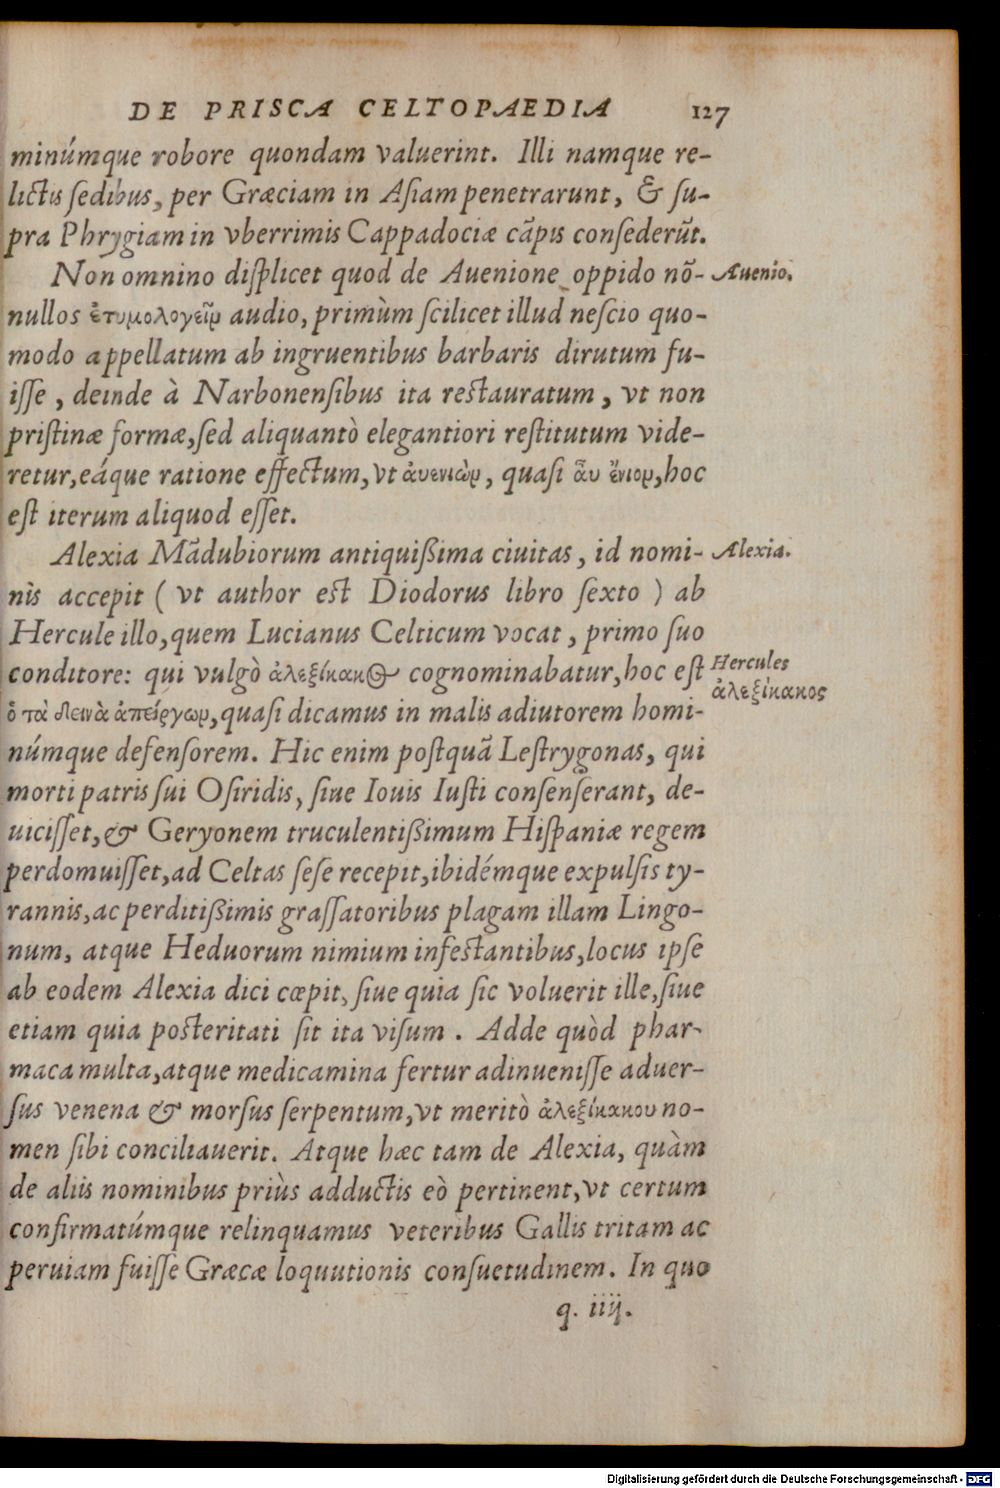 DE PRISCA CELTOPAEDIA 127
minúmque robore quondam valuerint. Illi namque re-
lictis ſedibus, per Græciam in Aſiam penetrarunt, & ſu-
pra Phrygiam in vberrimis Cappadociæ cãpis conſederũt.
Non omnino diſplicet quod de Auenione oppido nõ- Auenio.
nullos ἐτυμολογεῖν audio, primùm ſcilicet illud neſcio quo-
modo appellatum ab ingruentibus barbaris dirutum fu-
iſſe, deinde à Narbonenſibus ita reſtauratum, vt non
priſtinæ formæ, ſed aliquantò elegantiori reſtitutum vide-
retur, eáque ratione effectum, vt ἀυενιὼν, quaſi ἂυ ἔνιον, hoc
eſt iterum aliquod eſſet.
Alexia Mãdubiorum antiquißima ciuitas, id nomi- Alexia.
nis accepit ( vt author eſt Diodorus libro ſexto ) ab
Hercule illo, quem Lucianus Celticum vocat, primo ſuo
conditore: qui vulgò ἀλεξίκακος cognominabatur, hoc eſt Hercules
ἀλεξίκακος
ὁ τὰ δεινὰ ἀπείργων, quaſi dicamus in malis adiutorem homi-
númque defenſorem. Hic enim poſtquã Leſtrygonas, qui
morti patris ſui Oſiridis, ſiue Iouis Iuſti conſenſerant, de-
uiciſſet, & Geryonem truculentißimum Hiſpaniæ regem
perdomuiſſet, ad Celtas ſeſe recepit, ibidémque expulſis ty-
rannis, ac perditißimis graſſatoribus plagam illam Lingo-
num, atque Heduorum nimium infeſtantibus, locus ipſe
ab eodem Alexia dici cœpit, ſiue quia ſic voluerit ille, ſiue
etiam quia poſteritati ſit ita viſum . Adde quòd phar-
maca multa, atque medicamina fertur adinueniſſe aduer-
ſus venena & morſus ſerpentum, vt meritò ἀλεξίκακου no-
men ſibi conciliauerit. Atque hæc tam de Alexia, quàm
de aliis nominibus priùs adductis eò pertinent, vt certum
confirmatúmque relinquamus veteribus Gallis tritam ac
peruiam fuiſſe Græcæ loquutionis conſuetudinem. In quo
q. iiij.
Digitalisierung gefördert durch die Deutsche Forschungsgemeinschaft - DFG